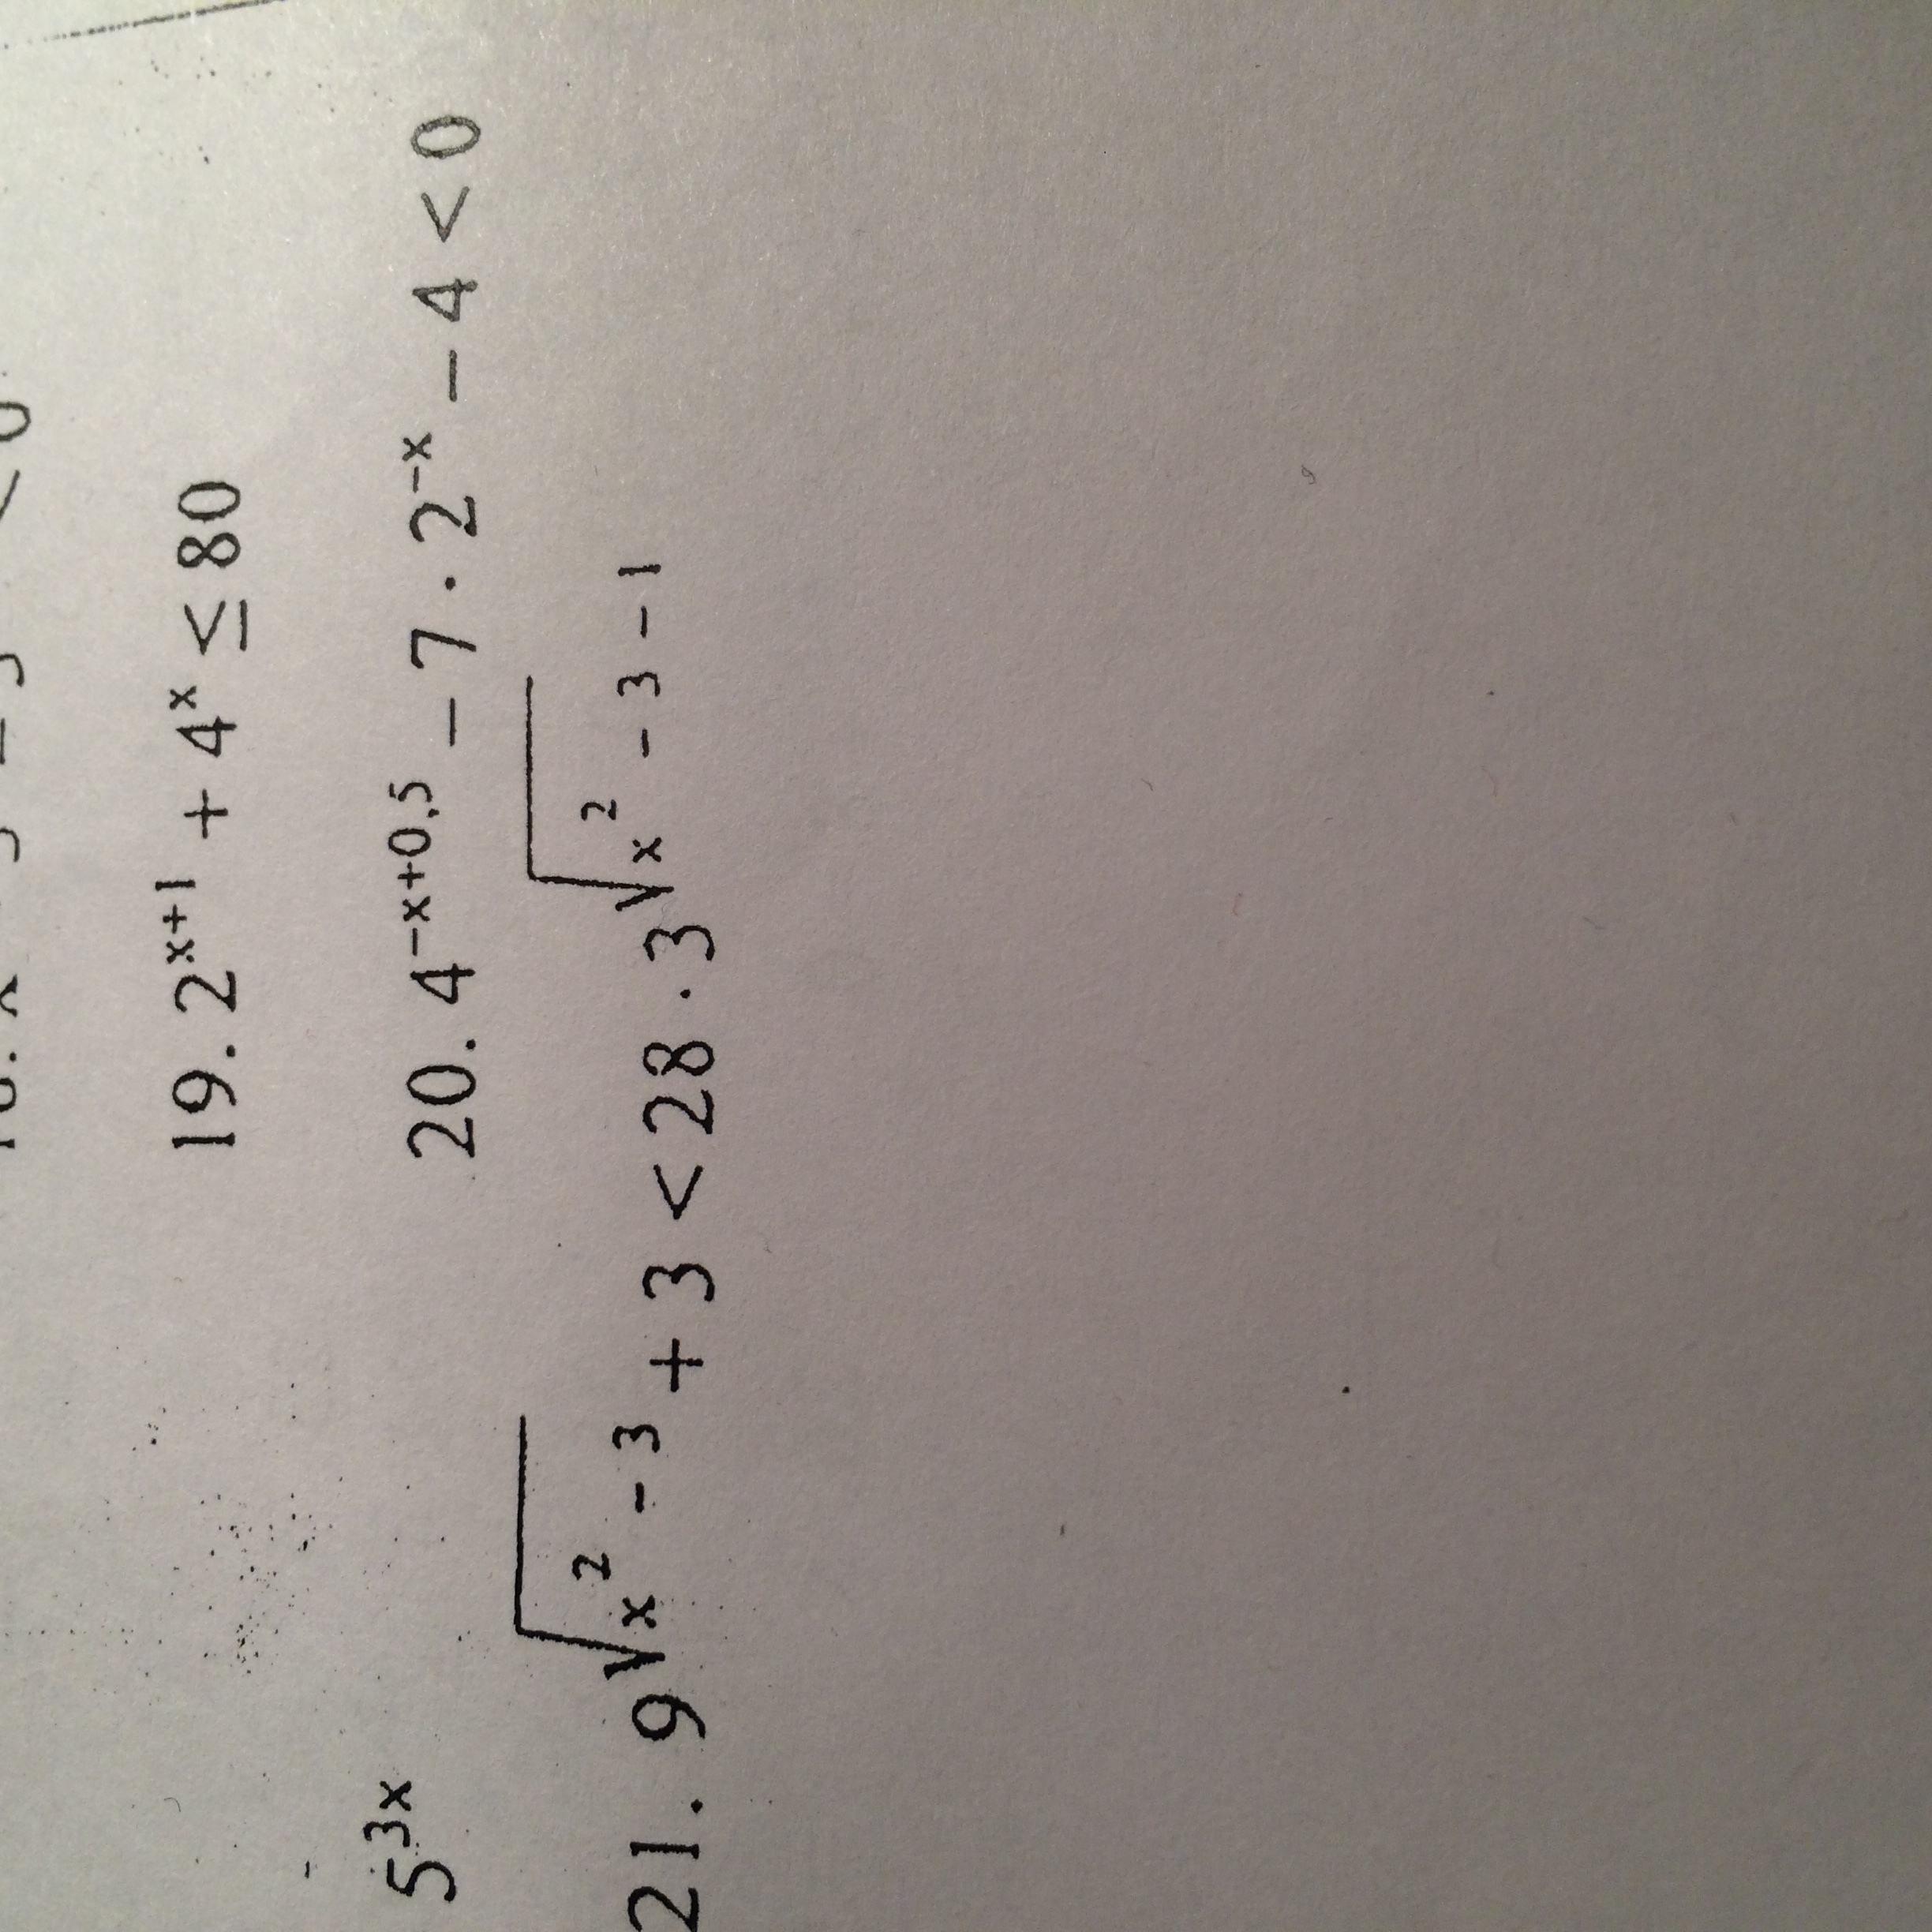 19. 2^{x+1} + 4^x ≤ 80
5^{3x}
20. 4^{-x+0,5} - 7 · 2^{-x} - 4 < 0
21. 9^{√(x^2 - 3)} + 3 < 28 · 3^{√(x^2 - 3) - 1}